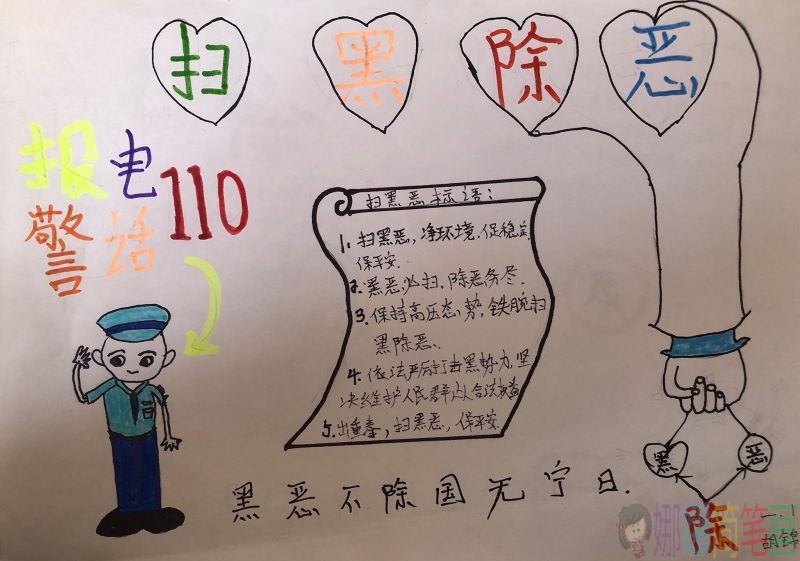 扫 黑 除 恶
报 电
警 话
110
扫黑恶标语:
1. 扫黑恶,净环境,促稳定,
保平安.
2. 黑恶必扫,除恶务尽.
3. 保持高压态势,铁腕扫
黑除恶.
4. 依法严厉打击黑势力,坚
决维护人民群众合法权益
5. 出重拳,扫黑恶,保平安.
黑 恶
除
黑恶不除国无宁日.
胡锦